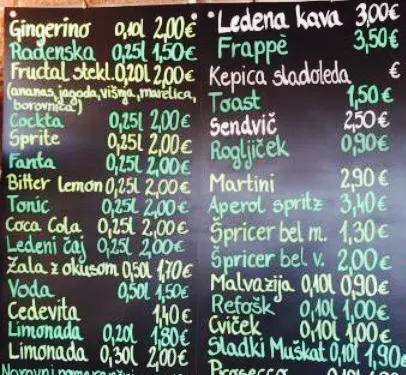 Gingerino 0,10l 2,00€
Radenska 0,25l 1,50€
Fructal stekl. 0,20l 2,00€
(ananas, jagoda, višnja, marelica,
borovnica)
Cockta 0,25l 2,00€
Sprite 0,25l 2,00€
Fanta 0,25l 2,00€
Bitter Lemon 0,25l 2,00€
Tonic 0,25l 2,00€
Coca Cola 0,25l 2,00€
Ledeni čaj 0,25l 2,00€
Zala z okusom 0,50l 1,70€
Voda 0,50l 1,50€
Cedevita 1,40€
Limonada 0,20l 1,80€
Limonada 0,30l 2,00€
Naravni pomarančni
Ledena kava 3,00€
Frappè 3,50€
Kepica sladoleda €
Toast 1,50€
Sendvič 2,50€
Rogljiček 0,90€
Martini 2,90€
Aperol spritz 3,40€
Špricer bel m. 1,30€
Špricer bel v. 2,00€
Malvazija 0,10l 0,90€
Refošk 0,10l 1,00€
Cviček 0,10l 1,00€
Sladki Muškat 0,10l 1,90€
Prosecco 0,10l